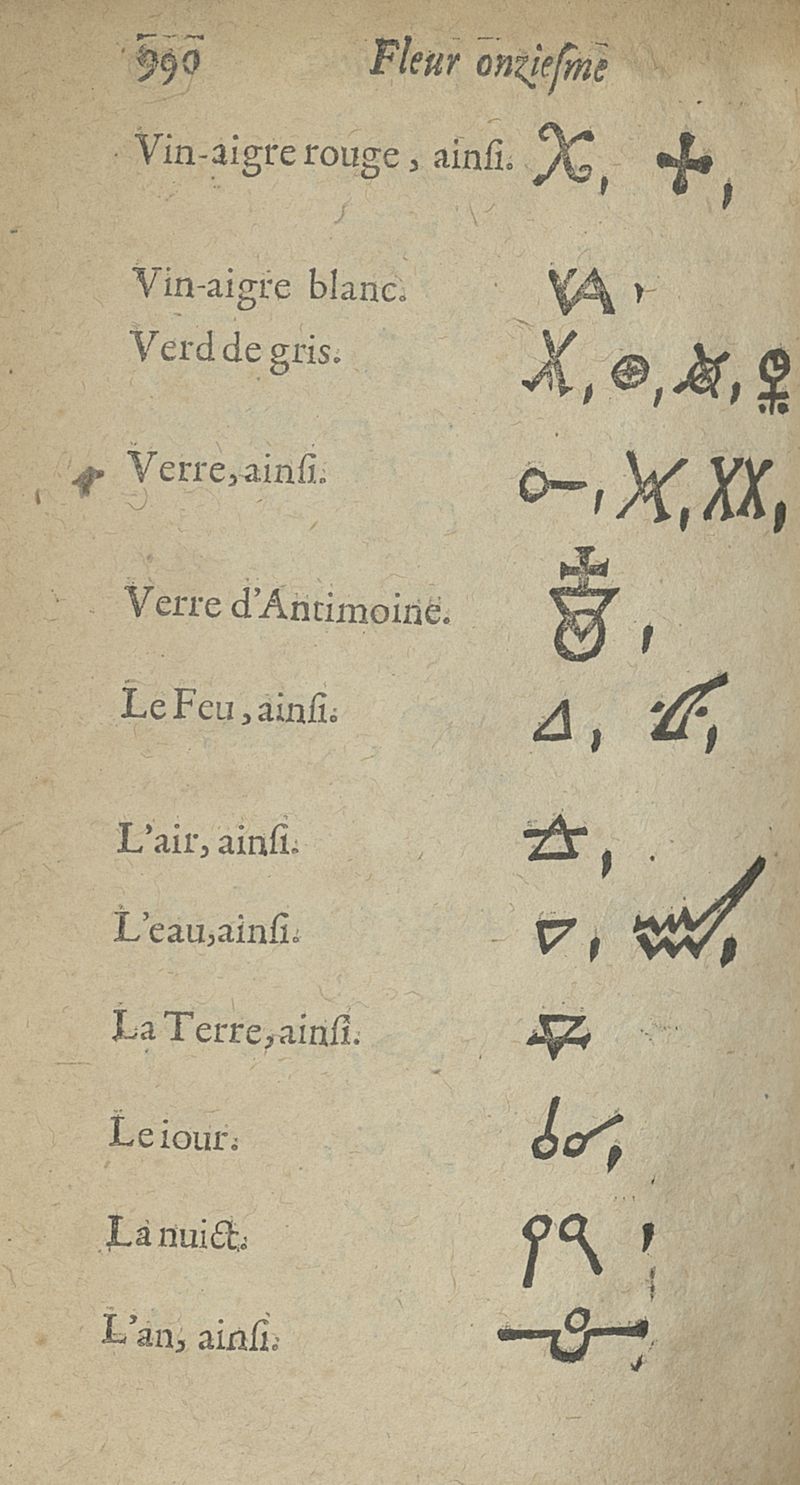 990 Fleur onzieſme
Vin-aigre rouge, ainſi.
Vin-aigre blanc.
Verd de gris.
Verre, ainſi.
Verre d'Antimoine.
Le Feu, ainſi.
L'air, ainſi.
L'eau, ainſi.
La Terre, ainſi.
Le iour.
La nuict.
L'an, ainſi.